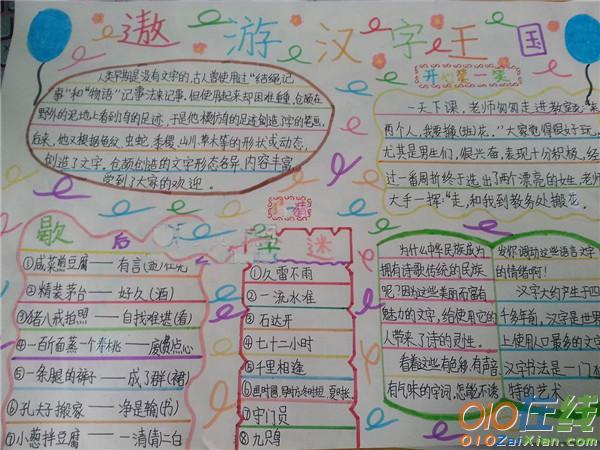 遨游汉字王国
人类早期是没有文字的,古人曾使过“结绳记
事”和“物语”记事法来记事.但使用起来却困难重重,仓颉在
野外的足地上看到了的足迹.于是他模仿的足迹创造了字的笔画,
后来,他又根据龟纹、虫蛇、禾稷、山川、草木等的形状或动态,
创造了文字.仓颉创造的文字形态各异,内容丰富,
受到了大家的欢迎.
开心笑一笑
一天下课,老师匆匆走进教室说:“来
两个人,我要搬(班)花,”大家觉得很好玩,
尤其是男生们,很兴奋,表现十分积极,经
过一番周折终于选出了两个漂亮的女生.老师
大手一挥:“走,和我到教务处搬花.
歇后
①咸菜煎豆腐——有言(盐)在先
②精装茅台——好久(酒)
③猪八戒拍照——自找难堪(看)
④一百个面蒸一个寿桃——废点心
⑤一条腿的裤子——成了群(裙)
⑥孔夫子搬家——净是输(书)
⑦小葱拌豆腐——一清(青)二白
字迷
①久雷不雨
②一流水准
③石达开
④七十二小时
⑤千里相逢
⑥画时圆,写时方,冬时短,夏时长.
⑦守门员
⑧九只鸟
为什么中华民族成为
拥有诗歌传统的民族
呢?因为这些美丽而富有
魅力的文字,给使用它的
人带来了诗的灵性.
看着这些有色彩,有声音
有气味的字词,怎能不诱
发你调动这些语言文字
的情绪啊!
汉字大约产生于四
千多年前,汉字是世界
上使用人口最多的文字
汉字书法是一门
特的艺术
010在线
010ZaiXian.com